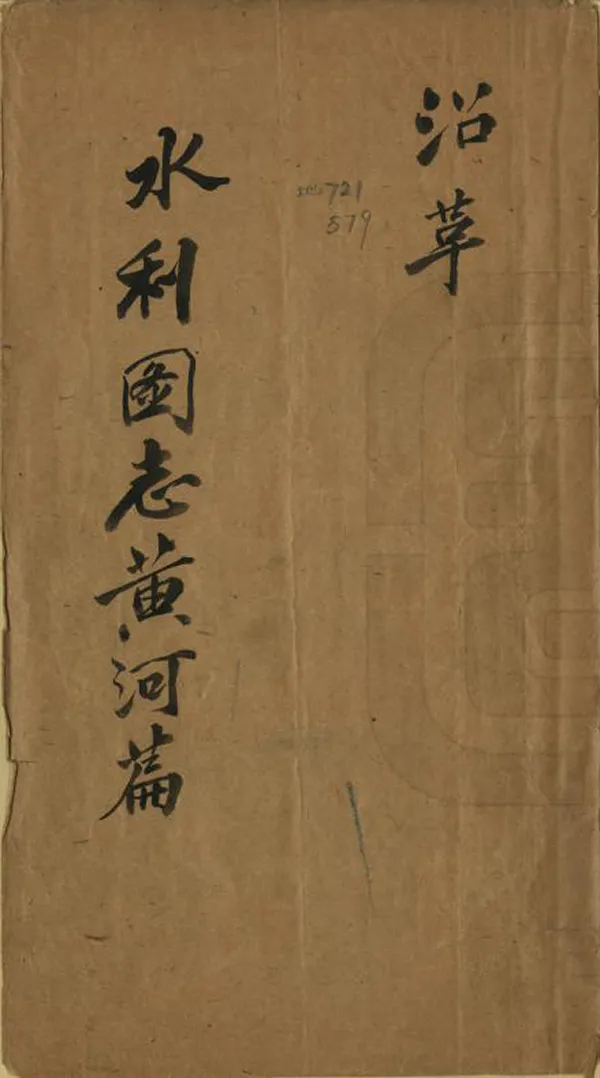 沿革
地721
579
水利圖志黄河篇